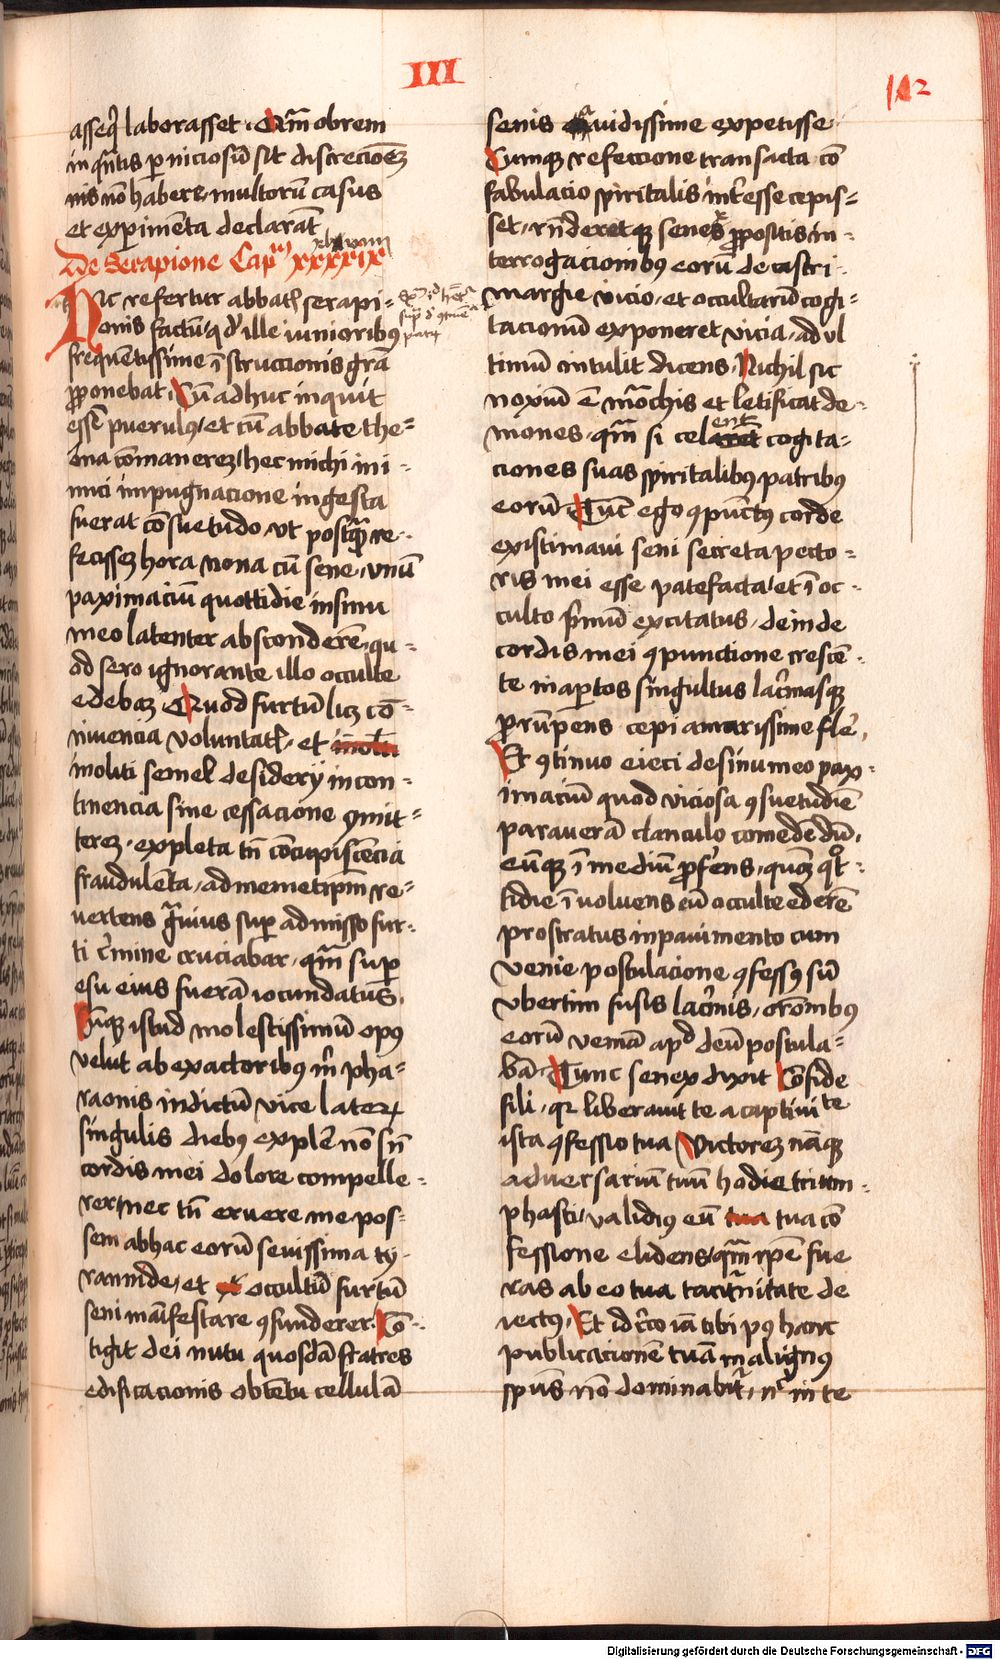 III
112
asseq̄ laborasset. Qm̄ obrem
in qn̄tis perniciosū sit discrecioēz
nis nō habere, multorū casus
et experimēta declarāt
De Serapione Capm̄ xxxxix
Hic refertur abbatis serapi-
onis factū, qd ille iunioribus
frequētissime īstruccionis grā
proponebat. Cū adhuc inquit
essē puerulus, et cū abbate the-
ona cōmanerez, hec michi ini-
mici impugnacione ingesta
fuerat cōsuetudo, vt postquā re-
fecissez hora nona cū sene, vnū
paximaciū quottidie in sinu
meo latenter absconderē, qu-
od sero ignorante illo occulte
edebaz. Quod furtū lz cō-
niuencia voluntatis, et
inoliti semel desiderij incon-
tinencia sine cessacione 9mit-
terez, expleta tn̄ cōcupiscēcia
fraudulēta, ad memetipm̄ re-
uertens grauius super admisso fur-
ti crimine cruciabar, quā super
esu eius fuerā iocundatus,
Cūq3 istud molestissimū opus
velut ab exactoribus mr̄ pha-
raonis indictū vice laterꝝ
singulis diebus explere nō sn̄
cordis mei dolore compelle-
rer, nec tn̄ eruere me pos-
sem ab hac eorū seuissima ty-
rannide, et occultū furtū
seni māifestare 9funderer. Cō-
tigit dei nutu quosdā fratres
edificacionis obtētu cellulā
senis auidissime expetisse
Cumq3 refeccione transacta cō
fabulacio spiritalis interesse cepis-
set, rn̄deretq3 senex propositis in-
terrogacionibus eorū de castri-
margie vicio, et occultarū cogi-
tacionū exponeret vicia, ad vl
timū intulit dicens, Nichil sic
noxiū ē mōachis et letificat de-
mones, quā si celarent cogita-
ciones suas spiritalibus patribus
eorū. Tūc ego 9pūctus corde
existimaui seni secreta pecto-
ris mei esse patefacta, et ī oc-
culto primū excitatus, deinde
cordis mei 9punctione crescē-
te in apertos singultus lacrimasq3
prorūpens cepi amarissime flere,
Et 9tinuo eieci de sinu meo pax-
imaciū quod viciosa 9suetudīe
parauerā clanculo comedēdū,
eūq3 ī mediū proferens, quez qt-
tidie ī uoluens eū occulte ederē
prostratus in pauimento cum
venie postulacione 9fessus sū
vbertim fusis lacrimis, orōnibus
eorū veniā apd deū postula-
bā. Tunc senex dixit Cōfide
fili, qr liberauit te a captiuitate
ista 9fessio tua, Victorez nāq3
aduersariū tuū hodie trium-
phasti, validius eū tua cō
fessione elidens, quā ipē fue
ras ab eo tua taciturnitate de
iectus. Et idcirco iā tibi pus hanc
publicacionē tuā malignus
spūs nō dominabitur, nec in te
Digitalisierung gefördert durch die Deutsche Forschungsgemeinschaft - DFG